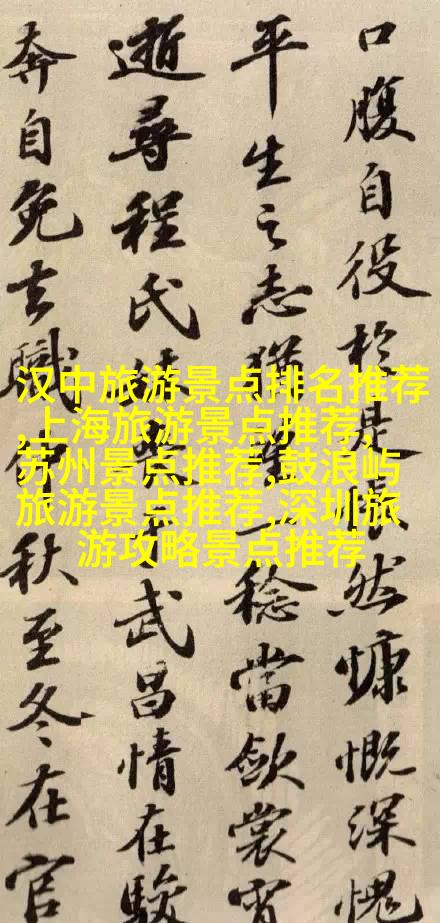 口腹自役於是悵然慷慨深愧
平生之志猶望一稔當斂裳宵
逝尋程氏妹喪于武昌情在駿
奔自免去職仲秋至冬在官
汉中旅游景点排名推荐
,上海旅游景点推荐,
苏州景点推荐,鼓浪屿
旅游景点推荐,深圳旅
游攻略景点推荐